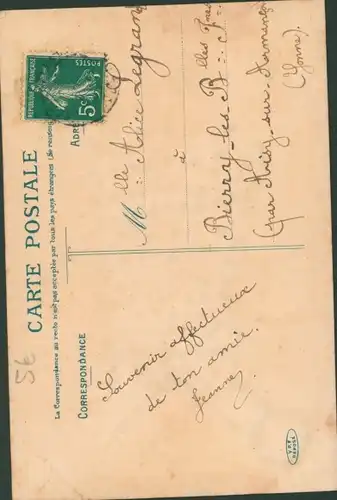 CARTE POSTALE
La Correspondance au recto n'est pas acceptée par tous les pays étrangers (Se renseigner
CORRESPONDANCE
ADRE
RÉPUBLIQUE FRANÇAISE
POSTES
5c
Souvenir affectueux
de ton amie.
Jeanne
Mlle Alice Legrand
à
Bierry-les-B
(par Aisy-sur-Armançon
(Yonne).
56